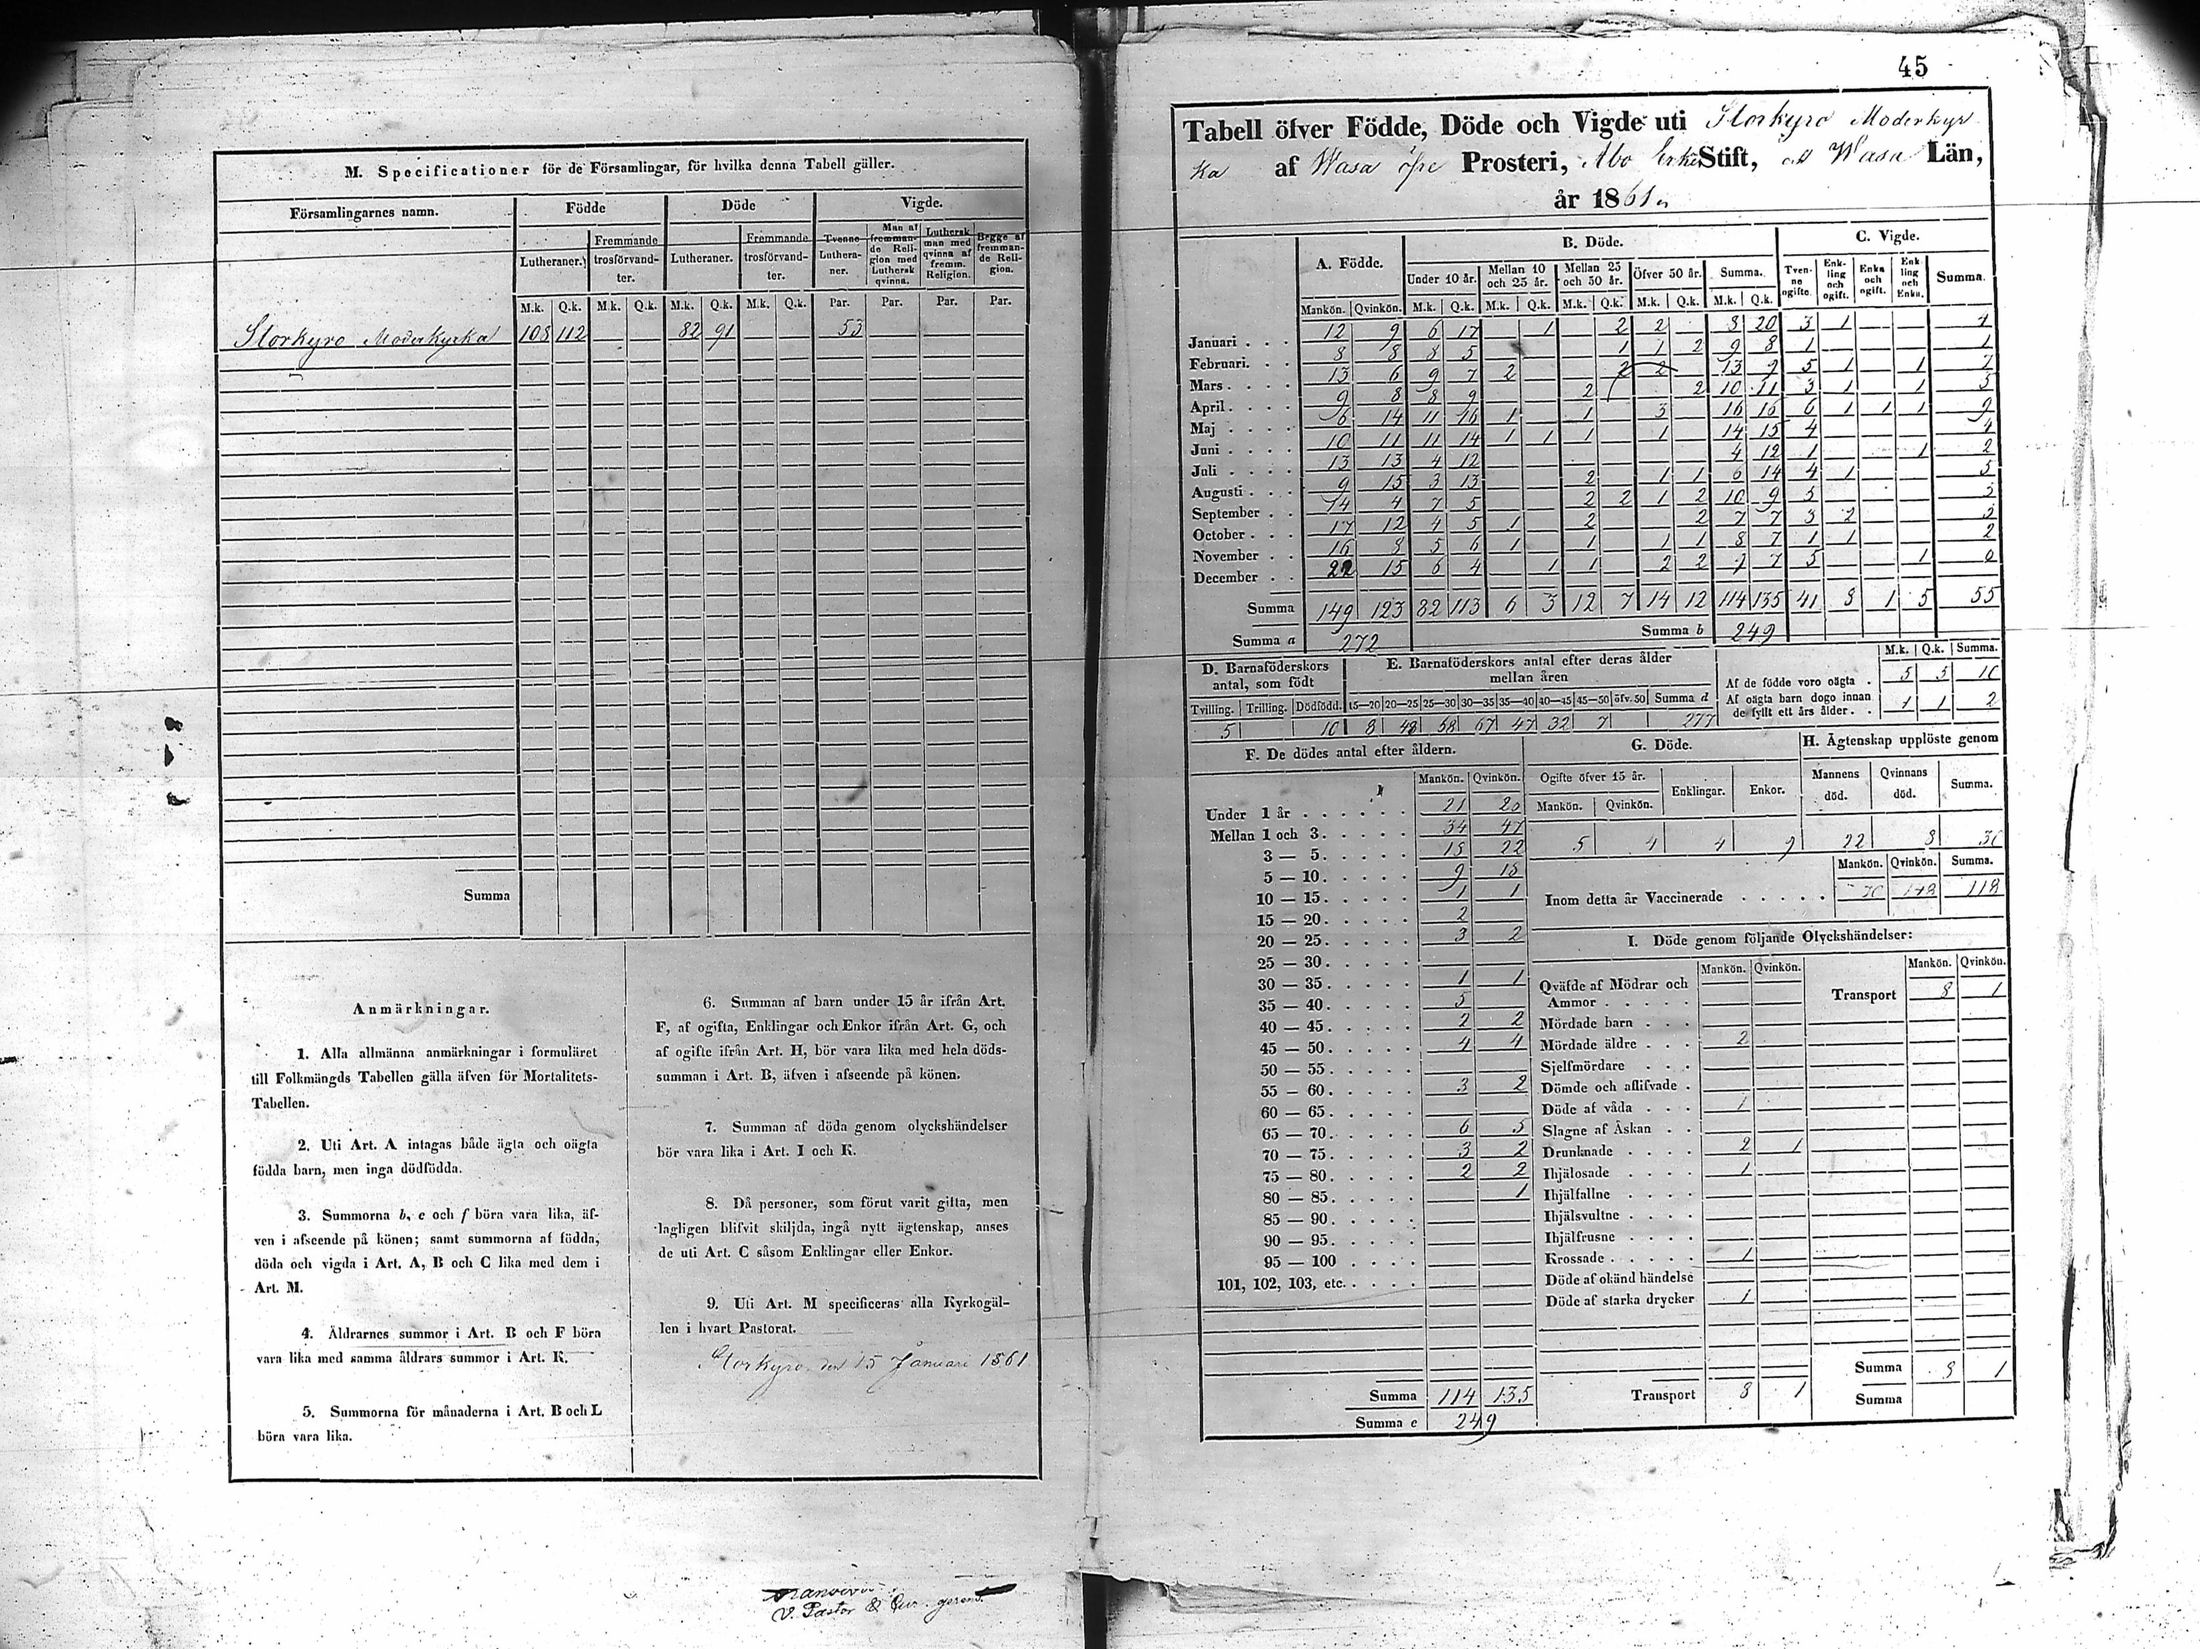 M. Specificationer för de Församlingar, för hvilka denna Tabell gäller.
Församlingarnes namn. Födde Döde Vigde.
Lutheraner. Fremmande trosförvandter. Lutheraner. Fremmande trosförvandter. Tvenne Lutheraner. Man af fremmande Religion med Luthersk qvinna. Luthersk man med qvinna af fremm. Religion. Begge af fremmande Religion.
M.k. Q.k. M.k. Q.k. M.k. Q.k. M.k. Q.k. Par. Par. Par. Par.
Storkyro Moderkyrka 108 112 82 91 53
Summa
Anmärkningar.
1. Alla allmänna anmärkningar i formuläret
till Folkmängds Tabellen gälla äfven för Mortalitets-
Tabellen.
2. Uti Art. A intagas både ägta och oägta
födda barn, men inga dödfödda.
3. Summorna b, e och f böra vara lika, äf-
ven i afseende på könen; samt summorna af födda,
döda och vigda i Art. A, B och C lika med dem i
Art. M.
4. Åldrarnes summor i Art. B och F böra
vara lika med samma åldrars summor i Art. K.
5. Summorna för månaderna i Art. B och L
böra vara lika.
6. Summan af barn under 15 år ifrån Art.
F, af ogifta, Enklingar och Enkor ifrån Art. G, och
af ogifte ifrån Art. H, bör vara lika med hela döds-
summan i Art. B, äfven i afseende på könen.
7. Summan af döda genom olyckshändelser
bör vara lika i Art. I och K.
8. Då personer, som förut varit gifta, men
lagligen blifvit skiljda, ingå nytt ägtenskap, anses
de uti Art. C såsom Enklingar eller Enkor.
9. Uti Art. M specificeras alla Kyrkogäl-
len i hvart Pastorat.
Storkyro den 15 Januari 1861
V. Pastor &
45
Tabell öfver Födde, Döde och Vigde uti Storkyro Moderkyr
ka af Wasa öfre Prosteri, Åbo Erke Stift, och Wasa Län,
år 1861.
A. Födde. B. Döde. C. Vigde.
Under 10 år. Mellan 10 och 25 år. Mellan 25 och 50 år. Öfver 50 år. Summa. Tvenne ogifte. Enkling och ogift. Enka och ogift. Enkling och Enka. Summa.
Mankön. Qvinkön. M.k. Q.k. M.k. Q.k. M.k. Q.k. M.k. Q.k. M.k. Q.k.
Januari 12 9 6 17 1 2 2 8 20 3 1 4
Februari 8 8 8 5 1 1 2 9 8 1 1
Mars 13 6 9 7 2 2 2 13 9 5 1 1 7
April 9 8 8 9 2 2 10 11 3 1 1 5
Maj 6 14 11 16 1 1 3 16 16 6 1 1 1 9
Juni 10 11 11 14 1 1 1 1 14 15 4 4
Juli 13 13 4 12 4 12 1 1 2
Augusti 9 15 3 13 2 1 1 6 14 4 1 5
September 14 4 7 5 2 2 1 2 10 9 5 5
October 17 12 4 5 1 2 2 7 7 3 2 5
November 16 8 5 6 1 1 1 1 8 7 1 1 2
December 22 15 6 4 1 1 2 2 9 7 5 1 6
Summa 149 123 82 113 6 3 12 7 14 12 114 135 41 8 1 5 55
Summa a 272 Summa b 249
D. Barnaföderskors antal, som födt
E. Barnaföderskors antal efter deras ålder mellan åren
M.k. Q.k. Summa.
Tvilling. Trilling. Dödfödd. 15—20 20—25 25—30 30—35 35—40 40—45 45—50 öfv. 50 Summa d
5 10 8 48 58 67 47 32 7 277
Af de födde voro oägta . 5 5 10
Af oägta barn dogo innan
de fyllt ett års ålder . . 1 1 2
F. De dödes antal efter åldern.
Mankön. Qvinkön.
Under 1 år 21 26
Mellan 1 och 3 34 47
3 — 5 15 22
5 — 10 9 18
10 — 15 1 1
15 — 20 2
20 — 25 3 2
25 — 30
30 — 35 1 1
35 — 40 5
40 — 45 2 2
45 — 50 4 4
50 — 55
55 — 60 3 2
60 — 65
65 — 70 6 5
70 — 75 3 2
75 — 80 2 2
80 — 85 1
85 — 90
90 — 95
95 — 100
101, 102, 103, etc.
Summa 114 135
Summa e 249
G. Döde.
Ogifte öfver 15 år. Enklingar. Enkor.
Mankön. Qvinkön.
5 4 4 9
H. Ägtenskap upplöste genom
Mannens död. Qvinnans död. Summa.
22 8 30
Mankön. Qvinkön. Summa.
Inom detta år Vaccinerade 118
I. Döde genom följande Olyckshändelser:
Mankön. Qvinkön. Mankön. Qvinkön.
Qväfde af Mödrar och
Ammor
Transport 8 1
Mördade barn
Mördade äldre 2
Sjelfmördare
Dömde och aflifvade
Döde af våda 1
Slagne af Åskan
Drunknade 2 1
Ihjälosade 1
Ihjälfallne
Ihjälsvultne
Ihjälfrusne
Krossade 1
Döde af okänd händelse
Döde af starka drycker 1
Summa 8 1
Transport 8 1 Summa